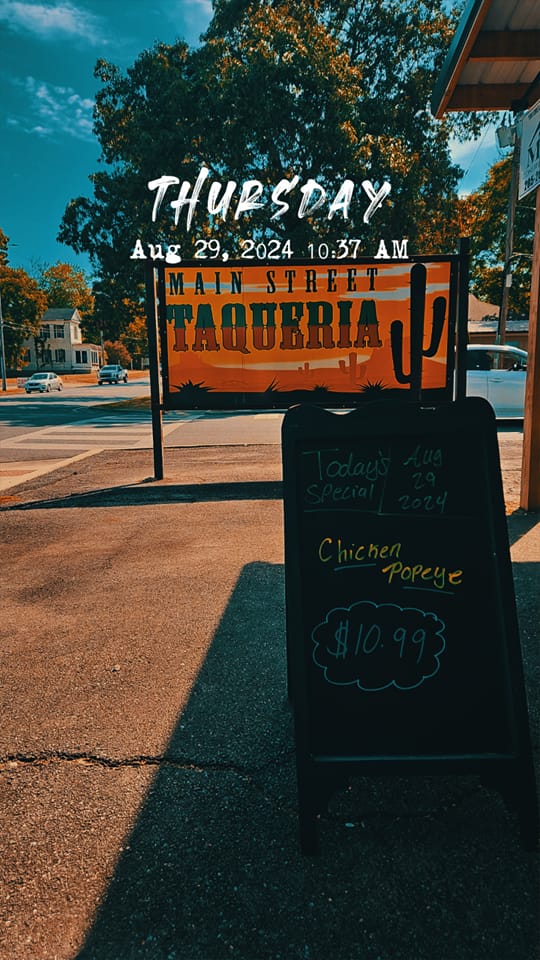 THURSDAY
Aug 29, 2024 10:37 AM
MAIN STREET
TAQUERIA
Today's Special
Aug 29 2024
Chicken
Popeye
$10.99